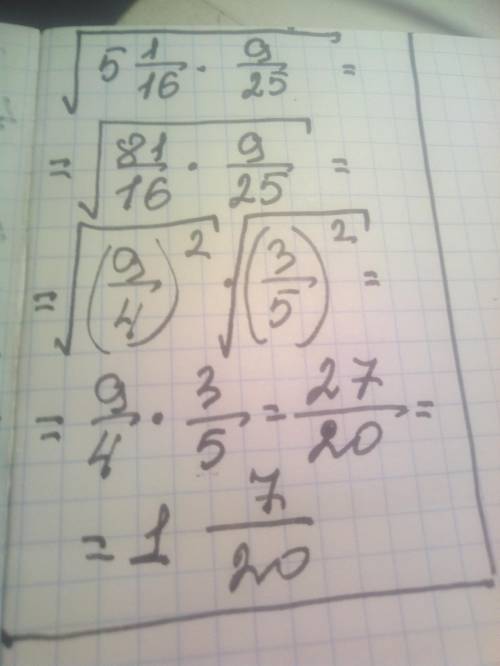 √(5 1/16 · 9/25) =
= √(81/16 · 9/25) =
= √((9/4)²) · √((3/5)²) =
= 9/4 · 3/5 = 27/20 =
= 1 7/20